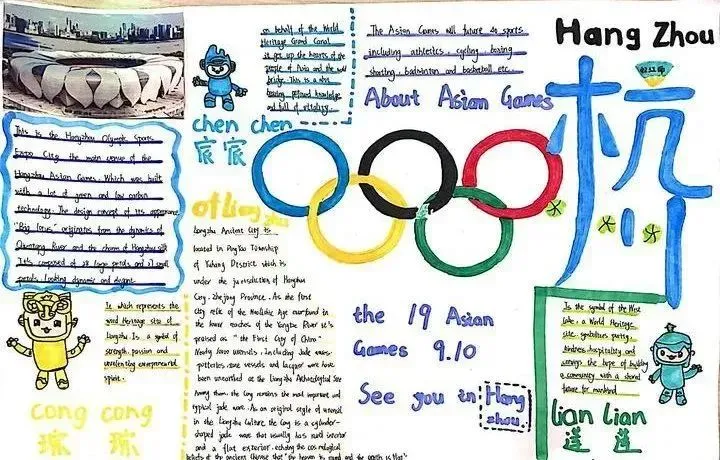 Hang Zhou
杭
on behalf of the World
Heritage Grand Canal
people of Asia and the
bridge. This is a
and full of vitality.
chen chen
宸 宸
The Asian Games will future 40 sports
including athletics, cycling, boxing
shooting, badminton and basketball etc.
About Asian Games
This is the Hangzhou Olympic Sports
Expo City the main venue of the
Hangzhou Asian Games. Which was built
with a lot of green and low carbon
technology. The design concept of its appearance
"Big lotus" originates from the dynamics of
Qiantang River and the charm of Hangzhou silk
It is composed of 28 large petals and 27 small
petals, looking dynamic and elegant.
of liang zhu
Liangzhu Ancient City is
located in PingYao Township
of Yuhang District which is
under the jurisdiction of Hangzhou
City, Zhejiang Province. As the first
City relic of the Neolithic Age over found in
the lower reaches of the Yangtze River it's
praised as "the First City of China"
Nearly 1000 utensils, Including Jade wares
potteries, stone vessels and lacquer ware have
been unearthed as the Liangzhu Archaeological Site
Among them the Cong remains the most important and
typical jade ware. As an original style of utensil
in the Liangzhu Culture the Cong is a cylinder-
shaped jade ware that usually has round interior
and a flat exterior, echoing the cosmological
beliefs of the ancient Chinese that "the heaven is round and the earth is flat"
Is which represents the
Heritage site of
Liangzhu Is a symbol of
strength, passion and
unrelenting entrepreneurial
spirit.
cong cong
琮 琮
the 19 Asian
Games 9.10
See you in Hang
zhou.
Is the symbol of the West
Lake, a World Heritage
site symbolizes purity,
kindness, hospitality and
conveys the hope of building
a community with a shared
future for mankind
lian lian
莲 莲